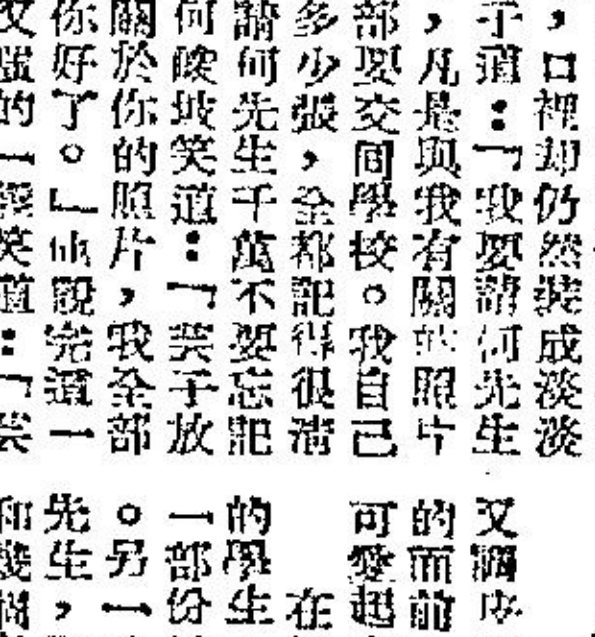 ，口裡却仍然裝成淡淡
子道：「我要請何先生
，凡是與我有關的照片
部，要交回學校。我自己
多少張，全都記得很清
請何先生千萬不要忘記
何峻坡笑道：「芸子放
關於你的照片，我全部
你好了。』她觀完這一
的一
笑道：「芸
又調皮
的面前
可愛起
在
的學生
一部份
。另一
先生，
和幾個